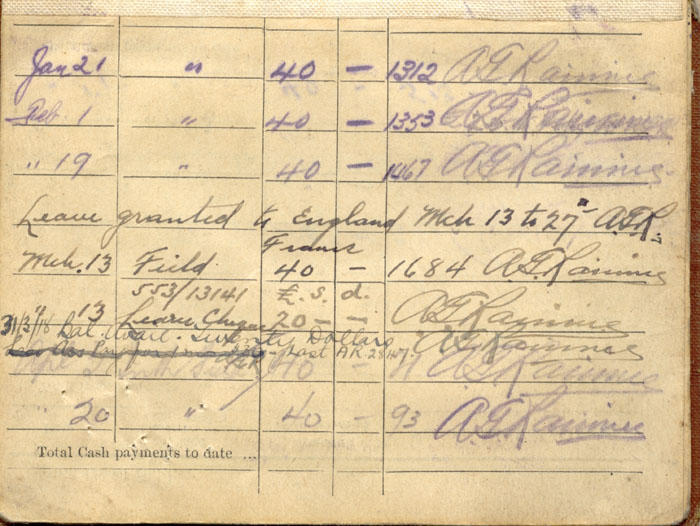 Jan 21 " 40 - 1312 A G Rainnie
Feb. 1 " 40 - 1353 A G Rainnie
" 19 " 40 - 1467 A G Rainnie
Leave granted to England Mch 13 to 27" A.G.R.
Francs
Mch. 13 Field 40 - 1684 A G Rainnie
553/13141 £. s. d.
" 13 Leave Cheque 20 - - A G Rainnie
31/3/18 Bal. avail. Twenty Dollars A G Rainnie
Last AR
40 - A G Rainnie
" 20 " 40 - 93 A G Rainnie
Total Cash payments to date ...